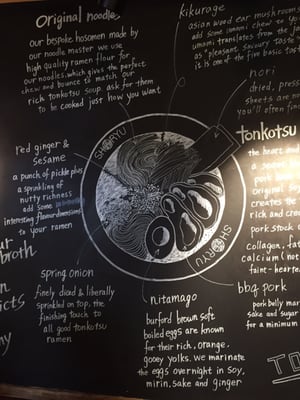 Original noodle
our bespoke hosomen made by
our noodle master we use
high quality ramen flour for
our noodles, which gives the perfect
chew and bounce to match our
rich tonkotsu soup. ask for them
to be cooked just how you want
kikurage
asian wood ear mushrooms
add some umami chew to
umami translates from the
as "pleasant savoury taste"
it is one of the five basic
nori
dried, press
sheets are
you'll often
tonkotsu
the heart and
a
pork
original
creates the
rich and
pork stock
collagen, fa
calcium (not
faint-hear
red ginger &
sesame
a punch of pickle plus
a sprinkling of
nutty richness
add some
interesting flavour dimensions
to your ramen
SHORYU
SHORYU
ur
broth
spring onion
finely diced & liberally
sprinkled on top, the
finishing touch to
all good tonkotsu
ramen
nitamago
burford brown soft
boiled eggs are known
for their rich, orange,
gooey yolks. we marinate
the eggs overnight in soy,
mirin, sake and ginger
bbq pork
pork belly mar
sake and sugar
for a minimum
icts
ny
TO